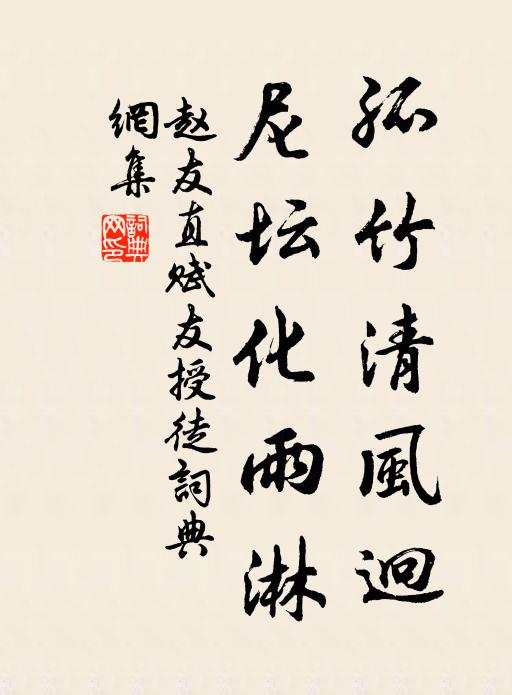 孤竹清風迥
尼坛化雨淋
赵友直赋友授徒詞典
網集
詞典
网印